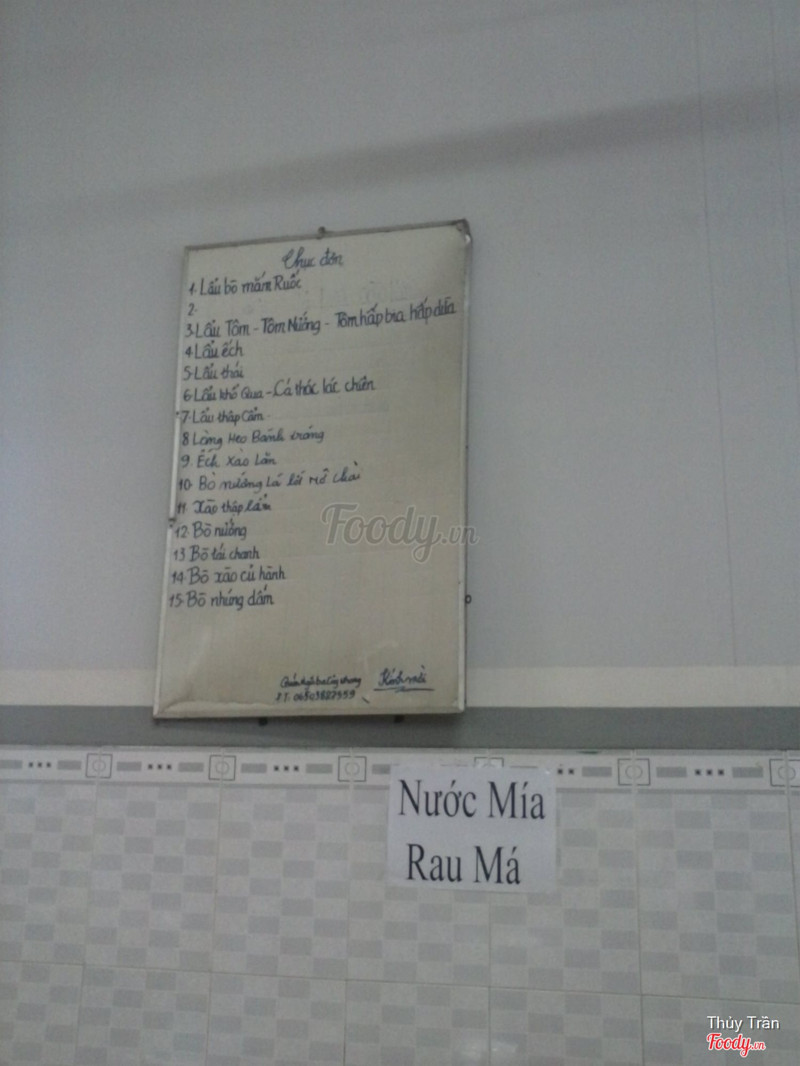 Thực đơn
1. Lẩu bò mắm Ruốc
2.
3. Lẩu Tôm - Tôm Nướng - Tôm hấp bia hấp dừa
4. Lẩu ếch
5. Lẩu thái
6. Lẩu khổ Qua - Cá thác lác chiên
7. Lẩu thập Cẩm
8 Lòng Heo Bánh tráng
9. Ếch Xào Lăn
10. Bò nướng Lá lốt mỡ chài
11. Xào thập Cẩm
12. Bò nướng
13 Bò tái chanh
14. Bò xào củ hành
15. Bò nhúng dấm
Kính mời
Foody.vn
Nước Mía
Rau Má
Thủy Trần
Foody.vn